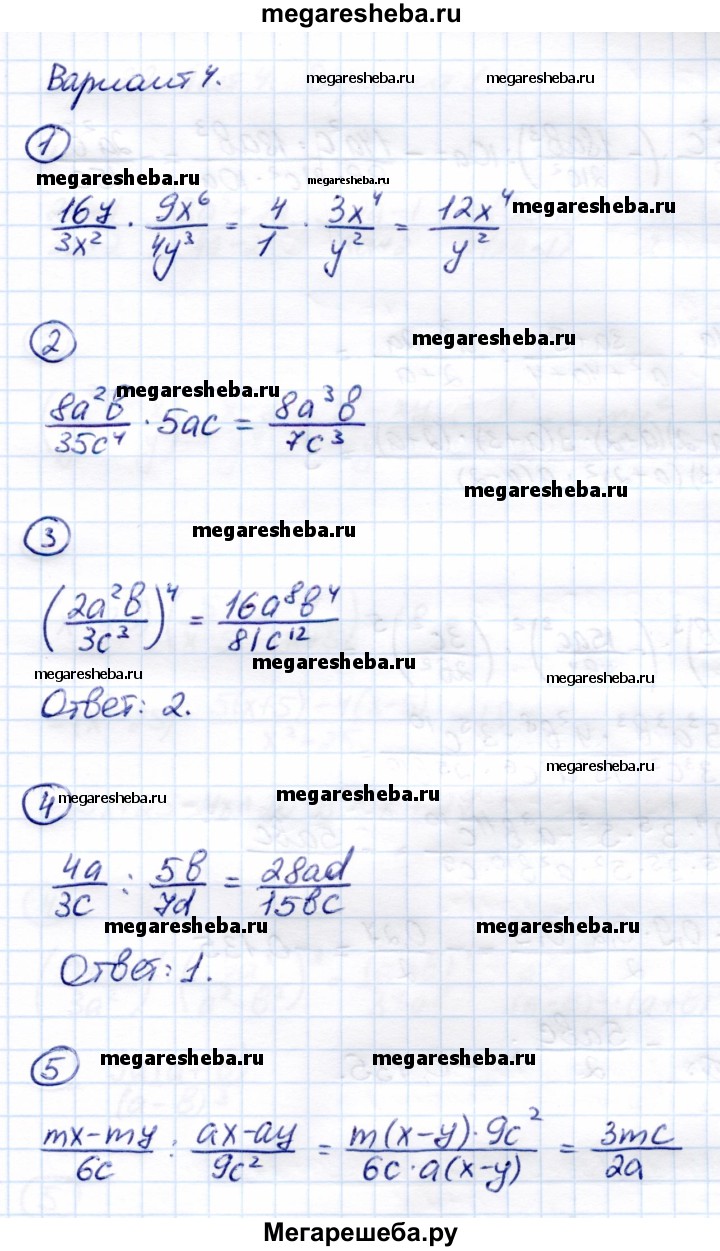 megaresheba.ru
Вариант 4.
megaresheba.ru megaresheba.ru
1
megaresheba.ru megaresheba.ru
16y/3x² · 9x⁶/4y³ = 4/1 · 3x⁴/y² = 12x⁴/y²
megaresheba.ru
2
megaresheba.ru
megaresheba.ru
8a²b/35c⁴ · 5ac = 8a³b/7c³
megaresheba.ru
3
megaresheba.ru
(2a²b/3c³)⁴ = 16a⁸b⁴/81c¹²
megaresheba.ru
megaresheba.ru megaresheba.ru
Ответ: 2.
megaresheba.ru
4
megaresheba.ru megaresheba.ru
4a/3c : 5b/7d = 28ad/15bc
megaresheba.ru megaresheba.ru
Ответ: 1.
5
megaresheba.ru megaresheba.ru
mx-my/6c : ax-ay/9c² = m(x-y)·9c²/6c·a(x-y) = 3mc/2a
Мегарешеба.ру